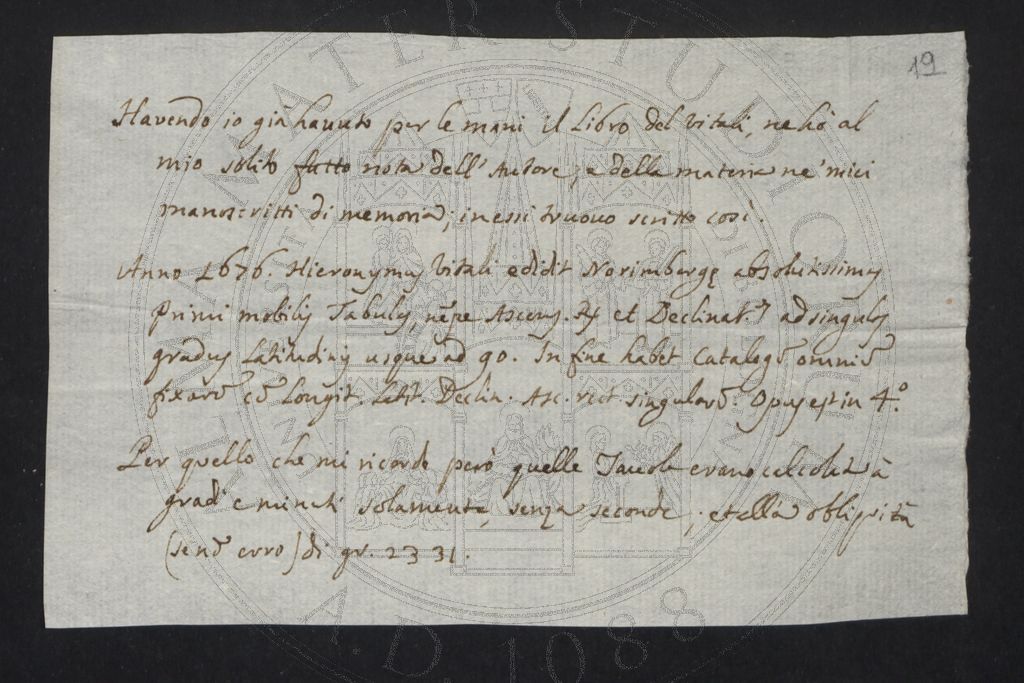 19
Havendo io già havuto per le mani il Libro del Vitali, ne hò al
mio solito fatto nota dell'Autore, e della materia ne' miei
manoscritti di memoria; in essi truovo scritto così.
Anno 1676. Hieronymus Vitali edidit Norimbergę absolutissimas
Primi mobilis Tabulas, nẽpe Ascens. Rs et Declinat.m ad singulos
gradus Latitudinis usque ad 90. In fine habet Catalogũ omniũ
fixarũ cũ Longit. Latit. Declin. Asc. rect singularũ. Opus est in 4.º
Per quello che mi ricordo però quelle Tavole erano calcolate à
gradi e minuti solamente, senza seconde; et alla obliquità
(se nõ erro) di gr. 23 31.
ALMA MATER STUDIORUM
A.D. 1088